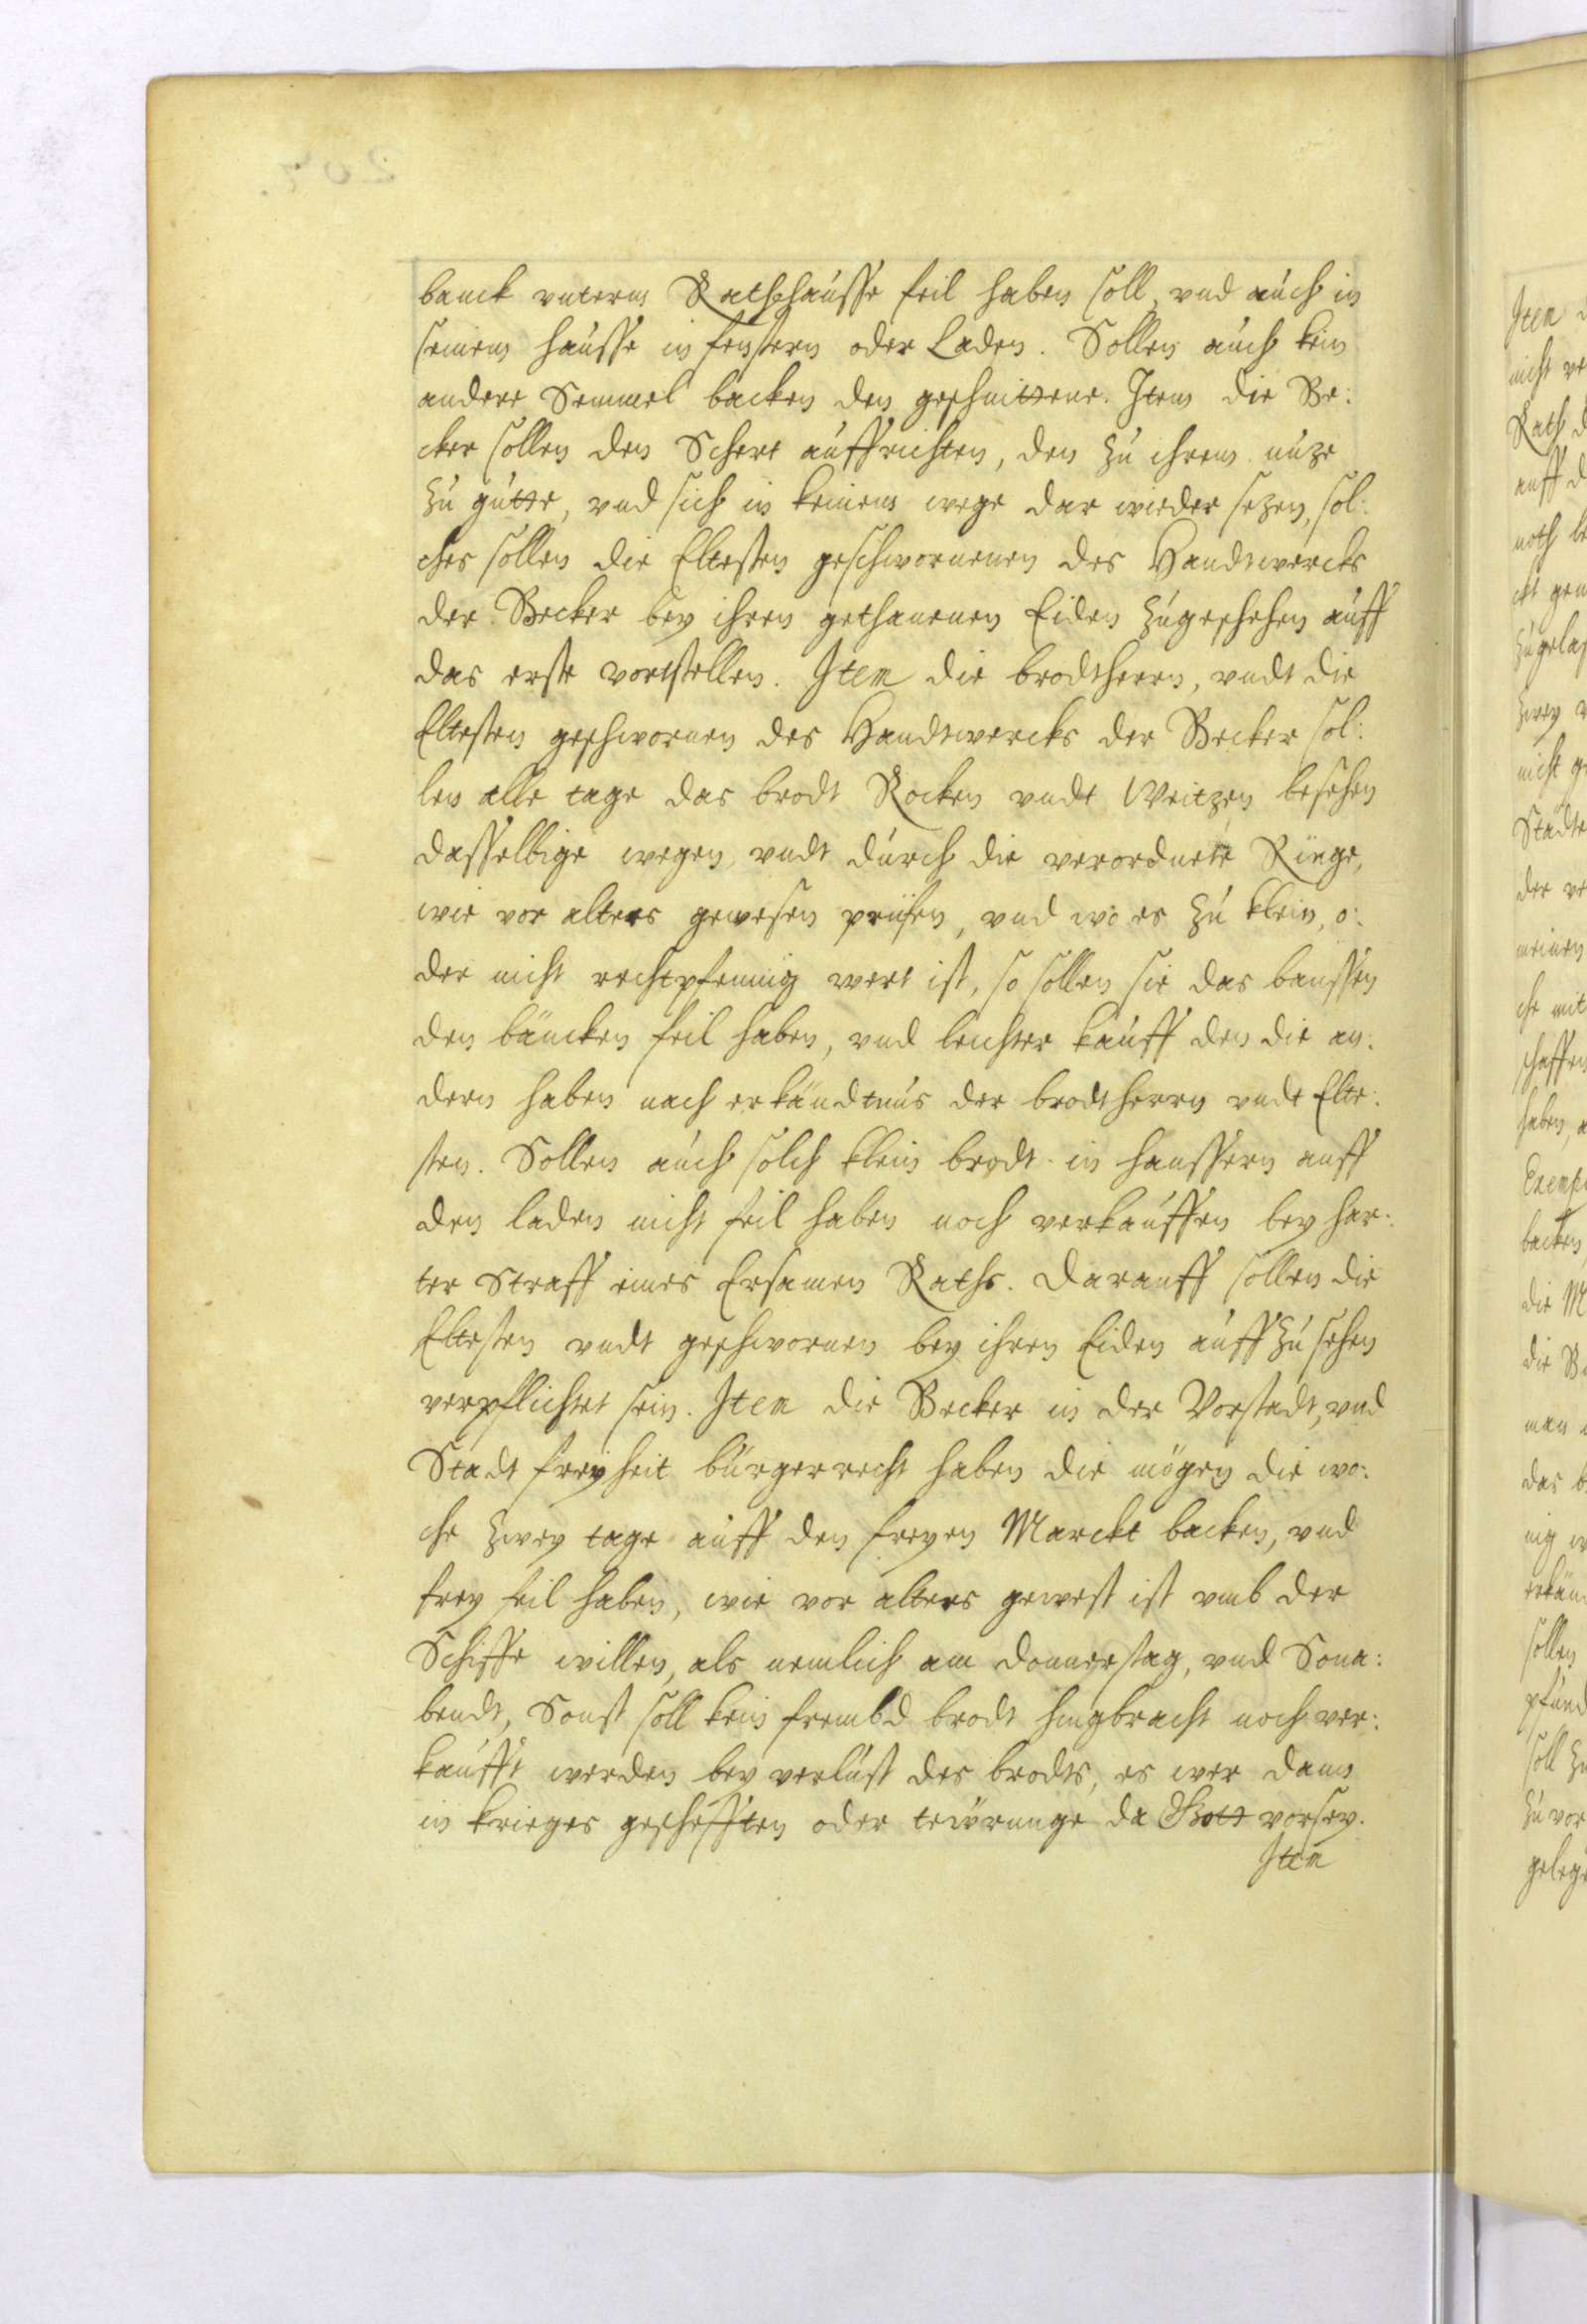 banck unterm Rathhausse feil haben soll, und auch in
seinem hausse in fenstern oder Laden. Sollen auch kein
andere Semmel backen den geschnittene. Item die Be:
cker sollen den Schert auffrichten, den zu ihrem nuze
zu gutte, und sich in keinem wege dar wieder sezen, sol:
ches sollen die Eltesten geschwornenen des Handtwercks
der Becker bey ihren gethanenen Eiden zugeschehen auff
das erste vortstellen. Item die brodtherrn, undt die
Eltesten geschwornen des Handtwercks der Becker sol:
len alle tage das brodt Rocken undt Weitzen besehen
dasselbige wegen, undt durch die verordnete Ringe,
wie vor alters gewesen prüfen, und wo es zu klein, o:
der nicht rechtpfennig wert ist, so sollen sie das baussen
den bäncken feil haben, und leichter kauff den die an:
dern haben nach erkändtnus der brodtherrn undt Elte:
sten. Sollen auch solch klein brodt in haussern auff
den laden nicht feil haben noch verkauffen bey har:
ter Straff eines Ersamen Raths. Darauff sollen die
Eltesten undt geschwornen bey ihren Eiden auff zu sehen
verpflichtet sein. Item die Becker in der Vorstadt, und
Stadt freyheit bürgerrecht haben die mögen die wo:
che zwey tage auff den freyen Marckt backen, und
frey feil haben, wie vor alters gewest ist umb der
Schiffe willen, als nemlich am Donnerstag, und Sona:
bendt, Sonst soll kein frembd brodt hingbracht noch ver:
kaufft werden bey verlust des brodts, es wer dann
in krieges gescheften oder tewrunge da Gott vorsey.
Item